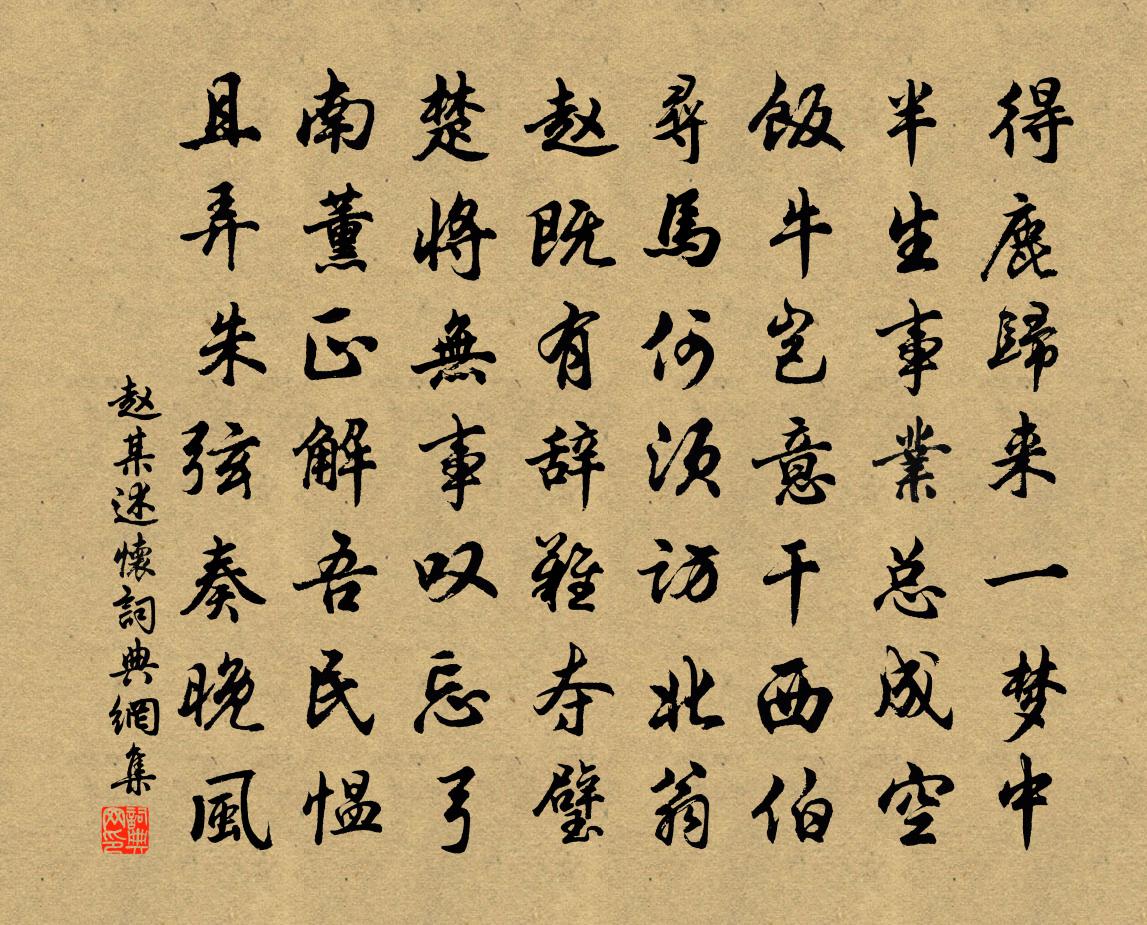 得鹿歸来一梦中
半生事業总成空
飯牛岂意干西伯
尋馬何须访北翁
赵既有辞難夺璧
楚將無事叹忘弓
南薰正解吾民愠
且弄朱弦奏晚風
赵某述懷詞典網集
詞典网印